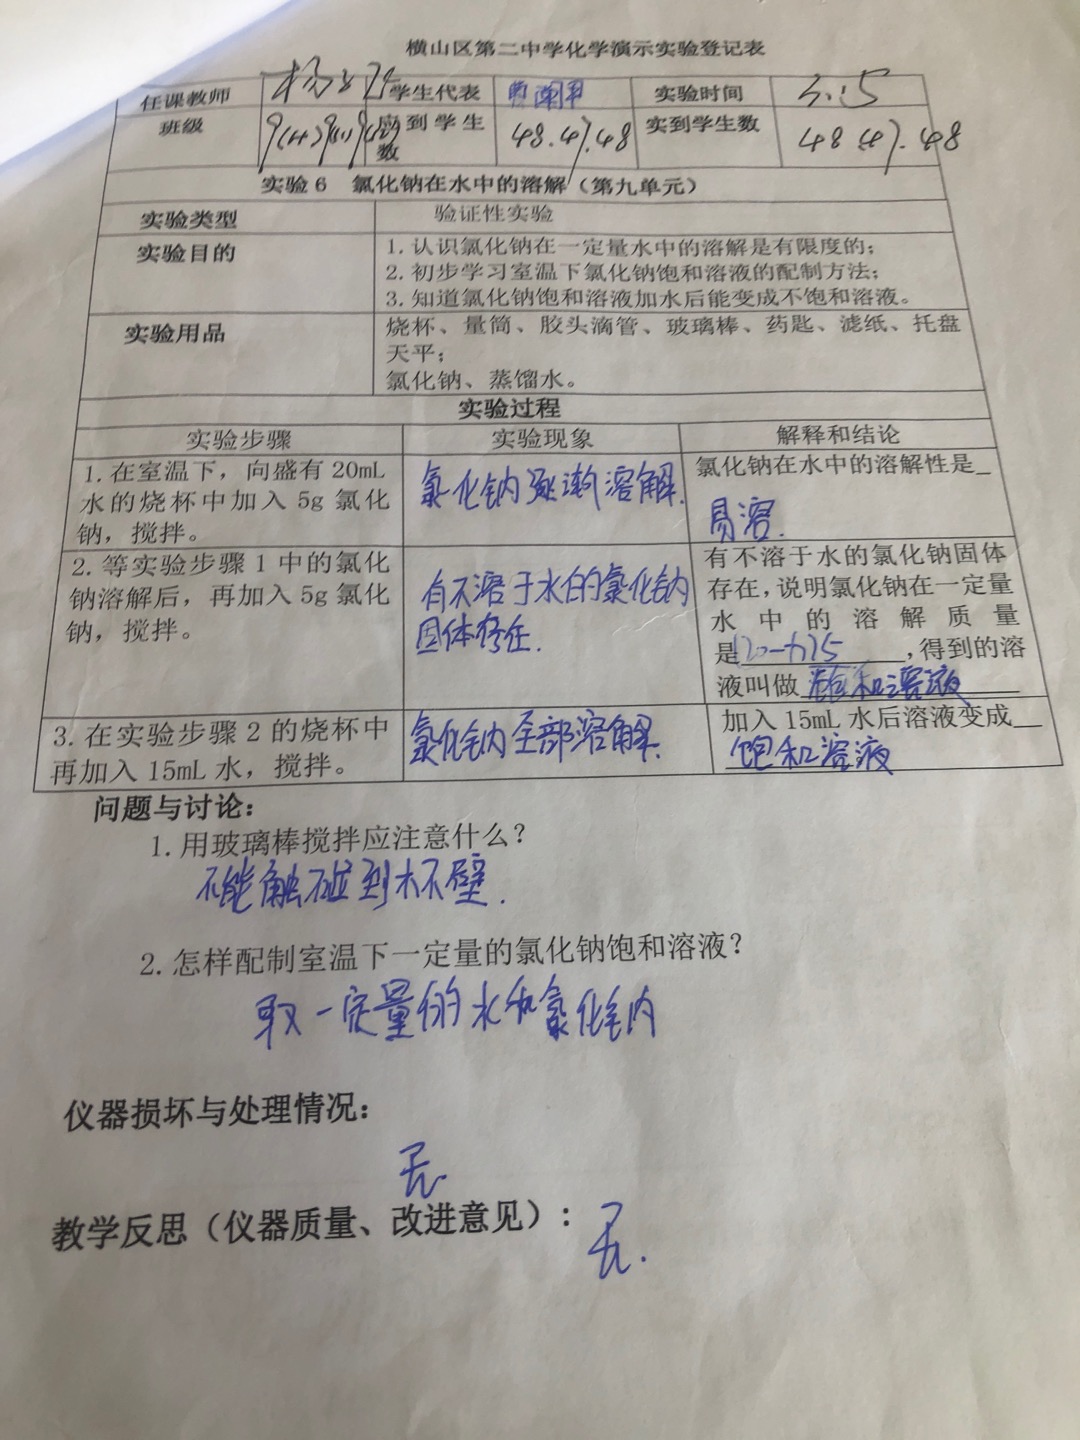 横山区第二中学化学演示实验登记表
任课教师 学生代表 实验时间 3.15
班级 应到学生数 48.47.48 实到学生数 48 47.48
实验6 氯化钠在水中的溶解(第九单元)
实验类型 验证性实验
实验目的 1.认识氯化钠在一定量水中的溶解是有限度的;
2.初步学习室温下氯化钠饱和溶液的配制方法;
3.知道氯化钠饱和溶液加水后能变成不饱和溶液。
实验用品 烧杯、量筒、胶头滴管、玻璃棒、药匙、滤纸、托盘
天平;
氯化钠、蒸馏水。
实验过程
实验步骤 实验现象 解释和结论
1.在室温下,向盛有20mL
水的烧杯中加入5g氯化
钠,搅拌。
氯化钠逐渐溶解.
氯化钠在水中的溶解性是_
易溶.
2.等实验步骤1中的氯化
钠溶解后,再加入5g氯化
钠,搅拌。
有不溶于水的氯化钠
固体存在.
有不溶于水的氯化钠固体
存在,说明氯化钠在一定量
水中的溶解质量
是 ,得到的溶
液叫做 饱和溶液
3.在实验步骤2的烧杯中
再加入15mL水,搅拌。
氯化钠全部溶解.
加入15mL水后溶液变成
饱和溶液
问题与讨论:
1.用玻璃棒搅拌应注意什么?
不能触碰到杯壁.
2.怎样配制室温下一定量的氯化钠饱和溶液?
取一定量的水和氯化钠
仪器损坏与处理情况:
无.
教学反思(仪器质量、改进意见):
无.